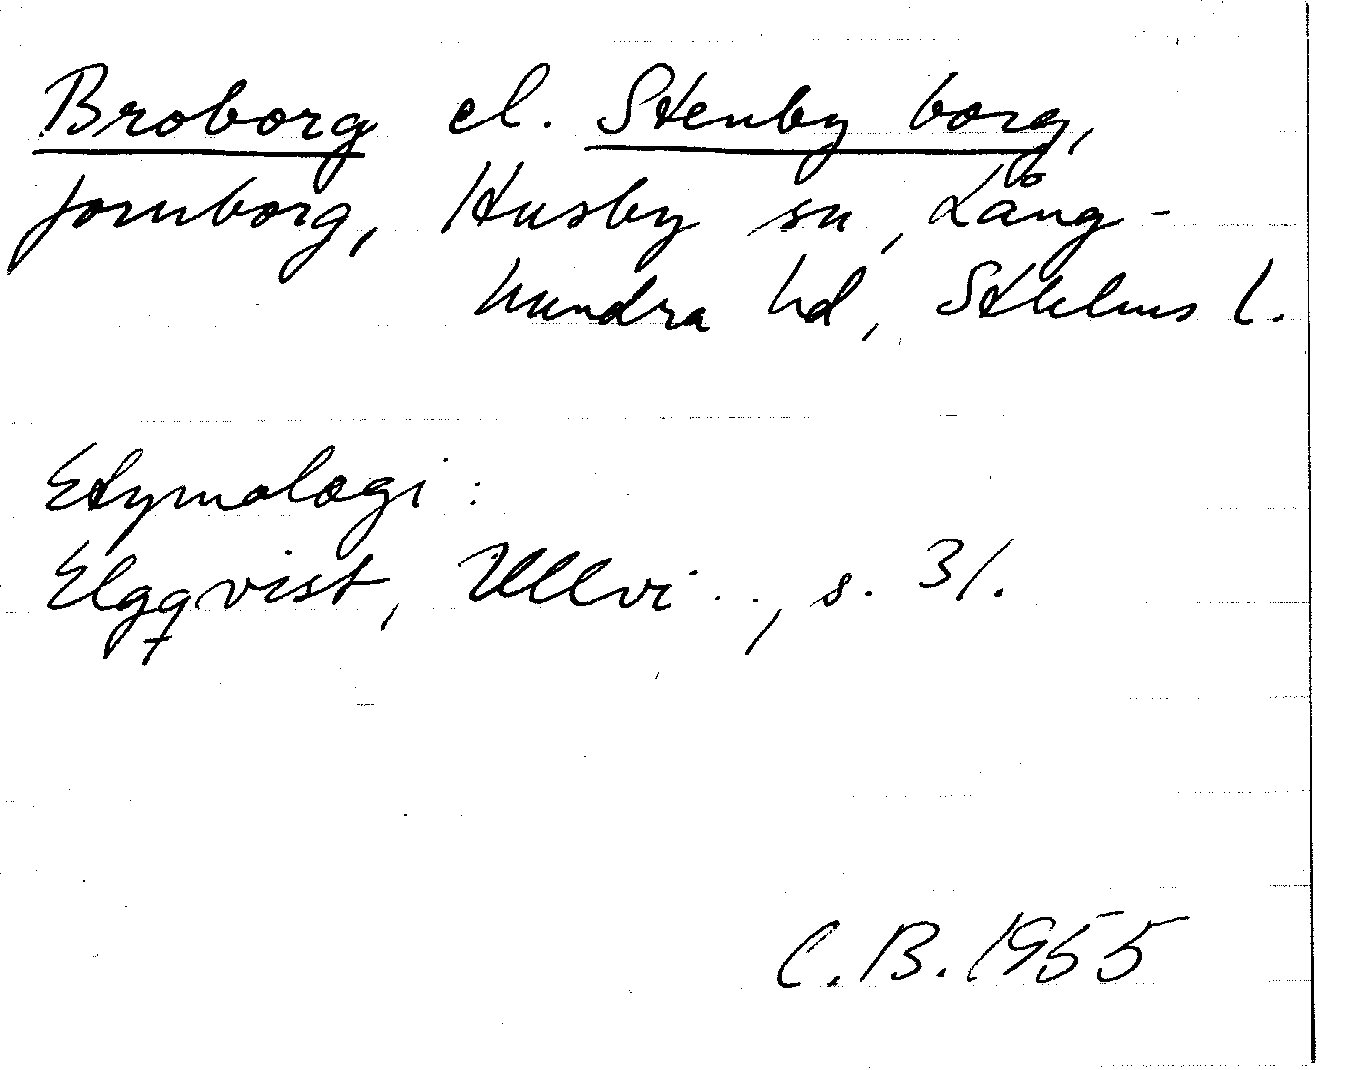 Broborg el. Stenby borg,
fornborg, Husby sn, Lång-
hundra hd, Sthlms l.
Etymologi:
Elgqvist, Ullvi . . , s. 31.
C.B. 1955